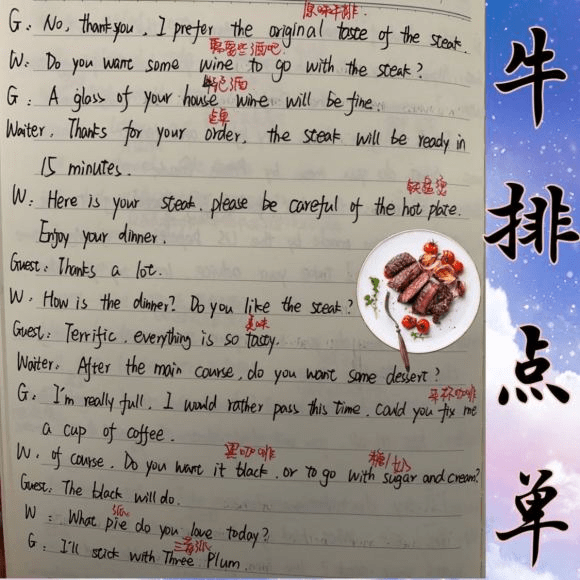 原味牛排
G: No, thankyou, I prefer the original taste of the steak.
需要些酒吧
W: Do you want some wine to go with the steak?
特色酒
G: A glass of your house wine will be fine.
点单
Waiter. Thanks for your order, the steak will be ready in
15 minutes.
铁盘烫
W: Here is your steak, please be careful of the hot plate.
Enjoy your dinner.
Guest: Thanks a lot.
W: How is the dinner? Do you like the steak?
美味
Guest: Terrific, everything is so tasty.
Waiter: After the main course, do you want some dessert?
来杯咖啡
G: I'm really full, I would rather pass this time, could you fix me
a cup of coffee.
黑咖啡 糖/奶
W: of course, Do you want it black, or to go with sugar and cream?
Guest: The black will do.
派
W: What pie do you love today?
G: I'll stick with Three Plum.
牛
排
点
单